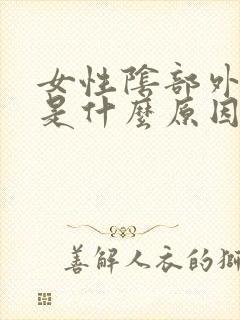 女性陰部外
是什麼原因
善解人衣的獅